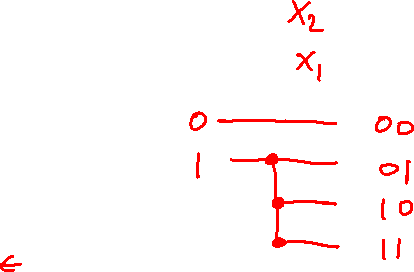 X₂
X₁
0 00
1 01
10
11